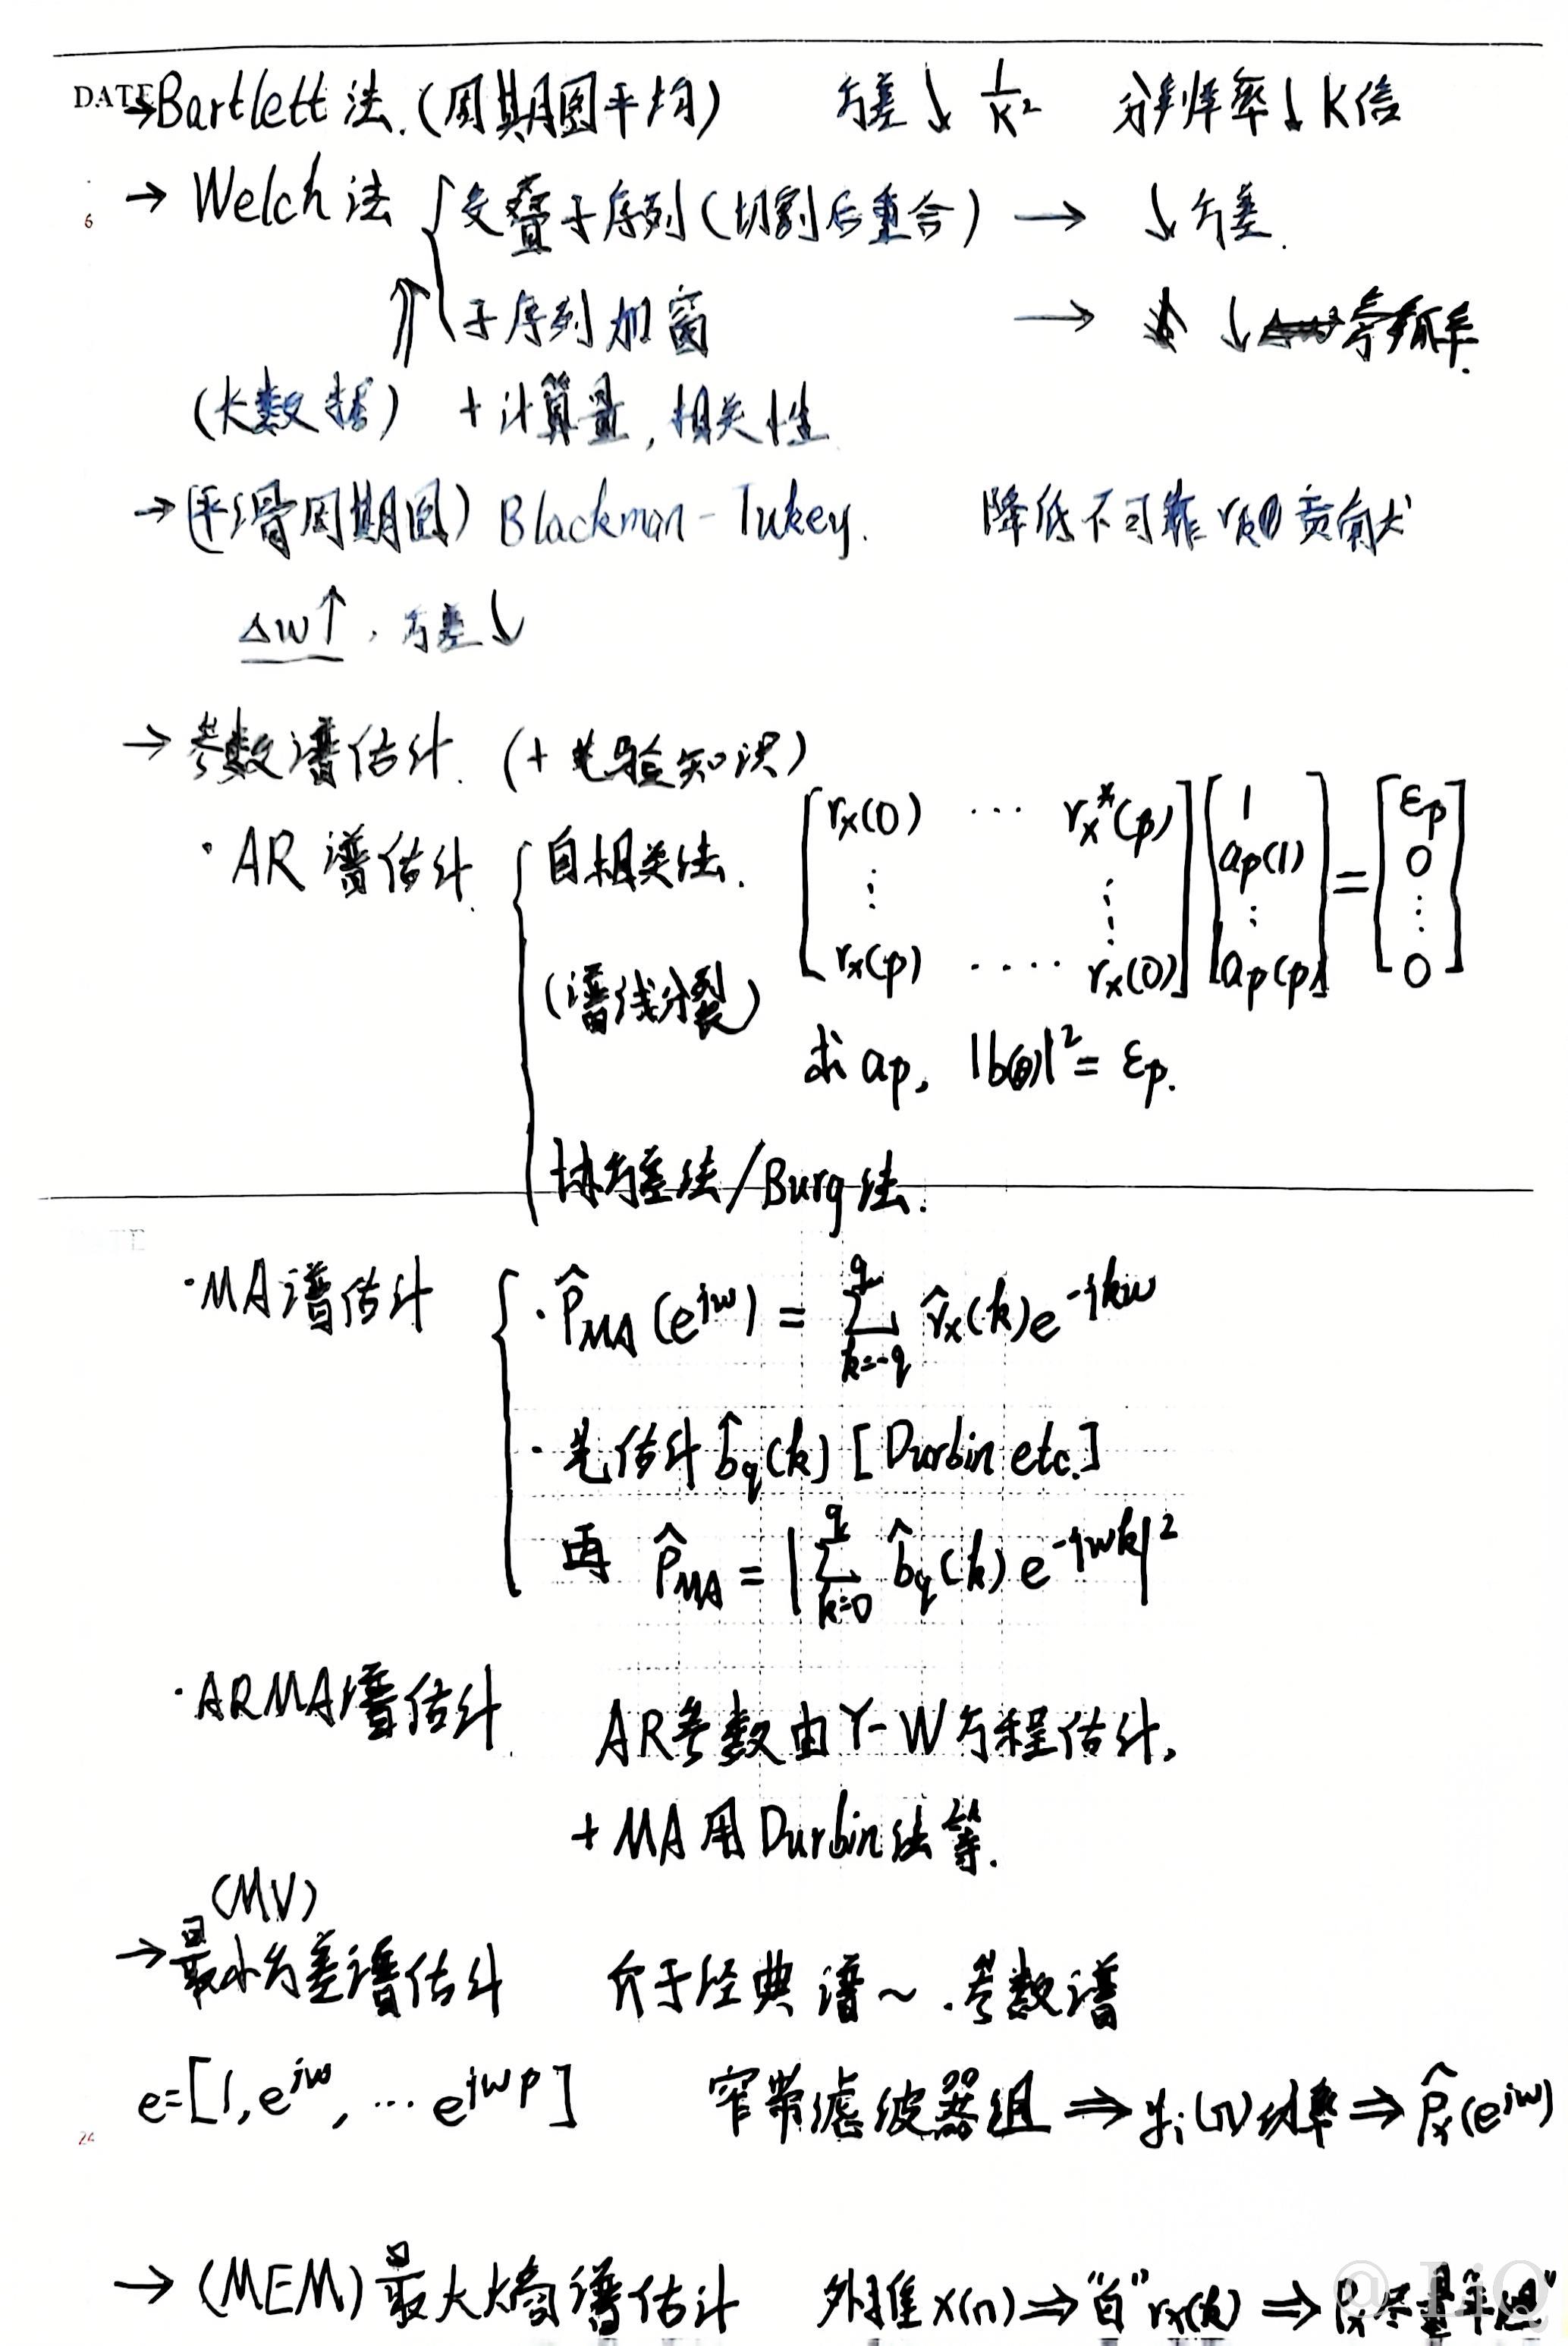 DATE →Bartlett法.(周期图平均) 方差↓ 1/K² 分辨率↓K倍
6 → Welch法 { 交叠子序列(切割后重合) → ↓方差.
子序列加窗 → ↓ 旁瓣
⇑
(大数据) +计算量,相关性
→(平滑周期图) Blackman-Tukey. 降低不可靠 贡献
Δw↑, 方差↓
→ 参数谱估计. (+先验知识)
·AR谱估计. { 自相关法. [rx(0) ⋯ rx*(p) ⋮ ⋮ rx(p) ⋯⋯ rx(0)] [1 ap(1) ⋮ ap(p)] = [εp 0 ⋮ 0]
(谱线分裂)
求ap, |b(0)|² = εp.
协方差法/Burg法.
DATE
·MA谱估计 { ·P̂MA(e^jw) = Σ_{k=-q}^{q} r̂x(k)e^-jkw
·先估计b̂q(k) [Durbin etc.]
再 P̂MA = |Σ_{k=0}^{q} b̂q(k)e^-jwk|²
·ARMA谱估计. AR参数由Y-W方程估计,
+MA用Durbin法等.
(MV)
→最小方差谱估计 介于经典谱~.参数谱
e=[1,e^jw,⋯e^jwp] 窄带滤波器组⇒yi(n)功率⇒P̂x(e^jw)
24
→(MEM)最大熵谱估计 外推x(n)⇒"白"rx(k)⇒Px尽量平坦"
@LiQ